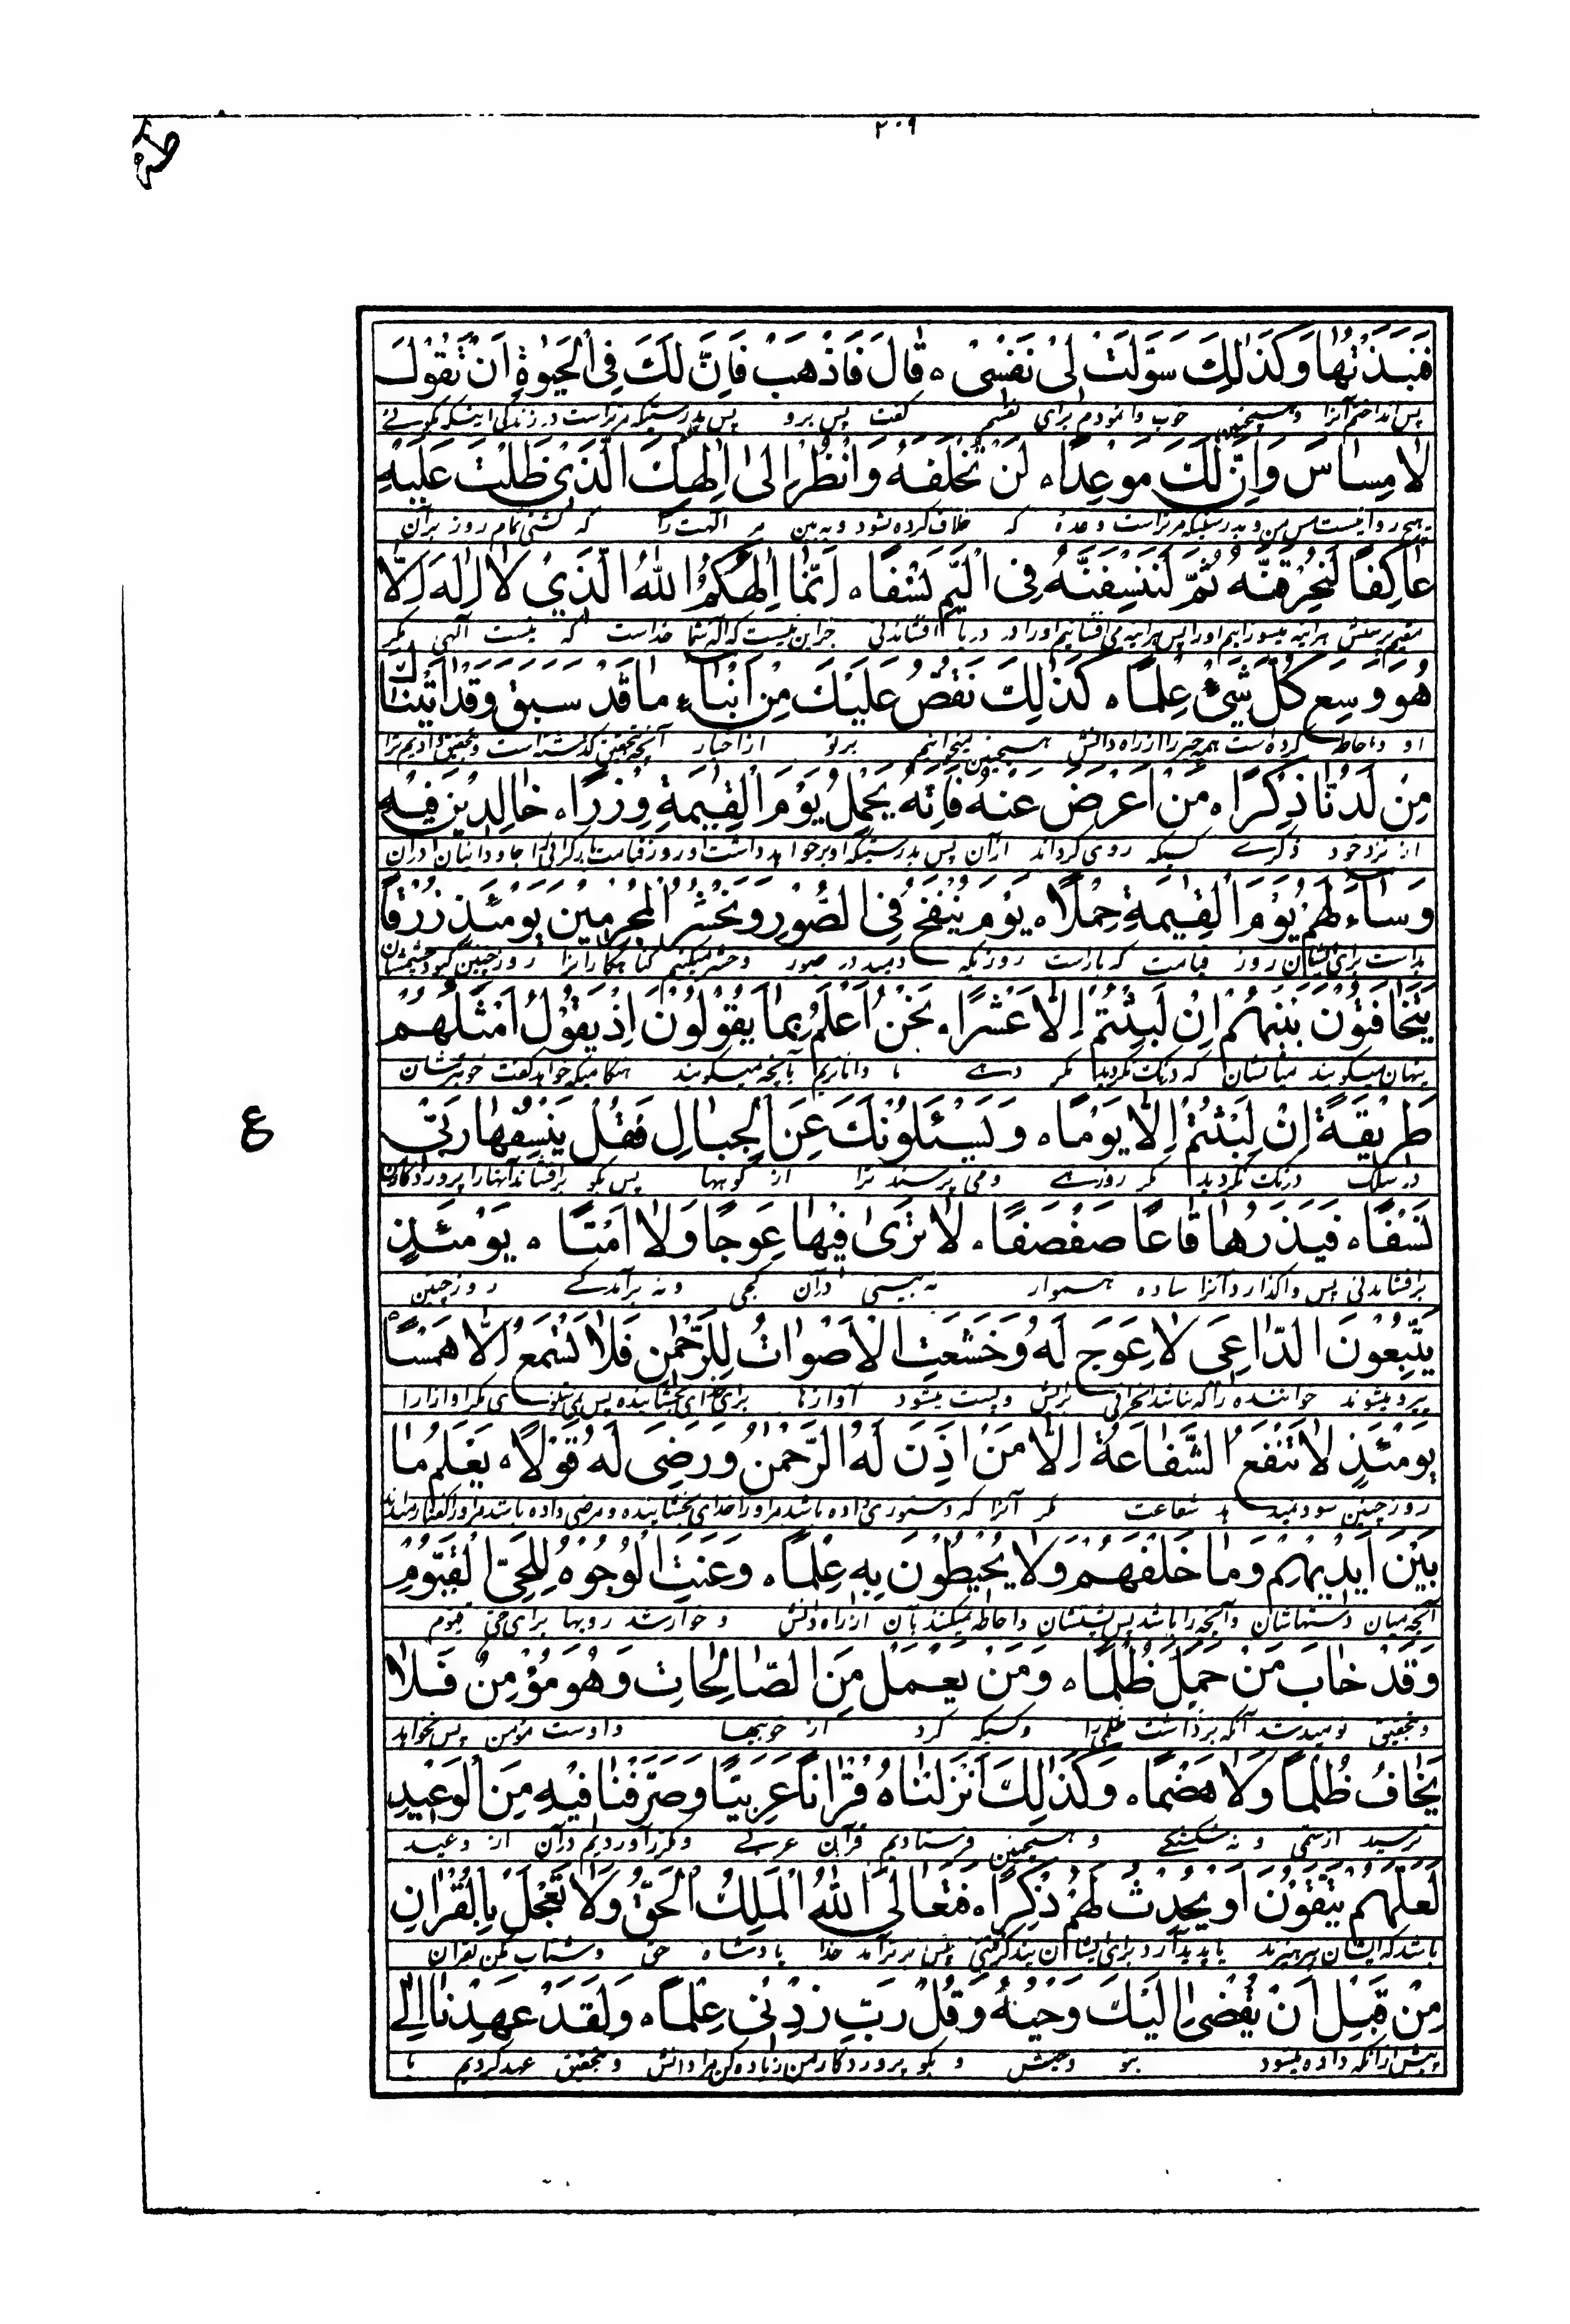 ٢٠٩
طه
فَنَبَذْتُهَا وَكَذٰلِكَ سَوَّلَتْ لِیْ نَفْسِیْ ه قَالَ فَاذْهَبْ فَاِنَّ لَكَ فِی الْحَیٰوةِ اَنْ تَقُوْلَ
پس انداختم آنرا وهمچنین خوب وانمودم برای نفسم گفت پس برو پس بدرستیکه مرتراست در زندگی اینکه بگوئی
لَا مِسَاسَ وَاِنَّ لَكَ مَوْعِدًا ه لَنْ تُخْلَفَهُ وَانْظُرْ اِلٰی اِلٰهِكَ الَّذِیْ ظَلْتَ عَلَیْهِ
وبدرستیکه مرتراست وعدهٔ که خلاف کرده نشود وبه بین بر الهت را که گشتی تمام روز برآن
عَاكِفًا لَنُحَرِّقَنَّهُ ثُمَّ لَنَنْسِفَنَّهُ فِی الْیَمِّ نَسْفًا ه اِنَّمَا اِلٰهُكُمُ اللهُ الَّذِیْ لَا اِلٰهَ اِلَّا
مقیم پرستش هرآینه میسوزانیم اورا پس هرآینه می افشانیم اورا در دریا افشاندنی جزاین نیست که اله شما خداست که نیست الهی مگر
هُوَ وَسِعَ كُلَّ شَیْءٍ عِلْمًا ه كَذٰلِكَ نَقُصُّ عَلَیْكَ مِنْ اَنْبَآءِ مَا قَدْ سَبَقَ وَقَدْ اٰتَیْنَاكَ
او واحاطه کرده است همه چیز را از راه دانش همچنین میخوانیم برتو از اخبار آنچه بتحقیق گذشته است وبتحقیق دادیم ترا
مِنْ لَدُنَّا ذِكْرًا ه مَنْ اَعْرَضَ عَنْهُ فَاِنَّهُ یَحْمِلُ یَوْمَ الْقِیٰمَةِ وِزْرًا ه خَالِدِیْنَ فِیْهِ
از نزد خود ذکرے کسیکه روی گرداند ازآن پس بدرستیکه او برخواهد داشت او روز قیامت بارگرانی را جاودانیان درآن
وَسَآءَ لَهُمْ یَوْمَ الْقِیٰمَةِ حِمْلًا ه یَوْمَ یُنْفَخُ فِی الصُّوْرِ وَنَحْشُرُ الْمُجْرِمِیْنَ یَوْمَئِذٍ زُرْقًا
بداست برای ایشان روز قیامت که باراست روزیکه دمیده در صور وحشر میکنیم گناهکارانرا روز چنین کبود چشمشان
یَتَخَافَتُوْنَ بَیْنَهُمْ اِنْ لَبِثْتُمْ اِلَّا عَشْرًا ه نَحْنُ اَعْلَمُ بِمَا یَقُوْلُوْنَ اِذْ یَقُوْلُ اَمْثَلُهُمْ
پنهان میگویند میانشان که درنگ نکردید مگر دهے ما داناتریم بآنچه میگویند هنگامیکه خواهد گفت خوبترشان
طَرِیْقَةً اِنْ لَبِثْتُمْ اِلَّا یَوْمًا ه وَیَسْئَلُوْنَكَ عَنِ الْجِبَالِ فَقُلْ یَنْسِفُهَا رَبِّیْ
ع
درسلک درنگ نکردید مگر روزے ومی پرسند ترا از کوهها پس بگو برافشاند آنهارا پروردگارمن
نَسْفًا ه فَیَذَرُهَا قَاعًا صَفْصَفًا ه لَا تَرٰی فِیْهَا عِوَجًا وَلَا اَمْتًا ه یَوْمَئِذٍ
برافشاندنی پس واگذارد آنرا ساده همهوار نه بینی درآن کجی ونه برآمدگے روز چنین
یَتَّبِعُوْنَ الدَّاعِیَ لَا عِوَجَ لَهُ وَخَشَعَتِ الْاَصْوَاتُ لِلرَّحْمٰنِ فَلَا تَسْمَعُ اِلَّا هَمْسًا
پیرو میشوند خواننده را که نباشد انحرافی برایش وپست میشود آوازها برای خدای بخشاینده پس نمیشنوی مگر آوازارا
یَوْمَئِذٍ لَا تَنْفَعُ الشَّفَاعَةُ اِلَّا مَنْ اَذِنَ لَهُ الرَّحْمٰنُ وَرَضِیَ لَهُ قَوْلًا ه یَعْلَمُ مَا
روز چنین سود نمیدهد شفاعت مگر آنرا که دستوری داده باشد مراورا خدای بخشاینده ومرضی داده باشد مراورا گفتار میداند
بَیْنَ اَیْدِیْهِمْ وَمَا خَلْفَهُمْ وَلَا یُحِیْطُوْنَ بِهِ عِلْمًا ه وَعَنَتِ الْوُجُوْهُ لِلْحَیِّ الْقَیُّوْمِ
آنچه میان دستهاشان وآنچه را باشد پس پشتشان واحاطه نمیکنند بآن از راه دانش وخوار شد رویها برای حی قیوم
وَقَدْ خَابَ مَنْ حَمَلَ ظُلْمًا ه وَمَنْ یَعْمَلْ مِنَ الصَّالِحَاتِ وَهُوَ مُؤْمِنٌ فَلَا
وبتحقیق نومید شد آنکه برداشت ظلمی را وکسیکه کرد از خوبیها واوست مؤمن پس نخواهد
یَخَافُ ظُلْمًا وَلَا هَضْمًا ه وَكَذٰلِكَ اَنْزَلْنَاهُ قُرْاٰنًا عَرَبِیًّا وَصَرَّفْنَا فِیْهِ مِنَ الْوَعِیْدِ
ترسید ازستمی ونه شکستگے وهمچنین فرستادیم قرآن عربے ومکرر آوردیم درآن از وعید
لَعَلَّهُمْ یَتَّقُوْنَ اَوْ یُحْدِثُ لَهُمْ ذِكْرًا ه فَتَعَالَی اللهُ الْمَلِكُ الْحَقُّ وَلَا تَعْجَلْ بِالْقُرْاٰنِ
باشد که ایشان بپرهیزند یا پدید آرد برای ایشان پند گرفتنی پس برتر آمد خدا پادشاه حق وشتاب مکن بقران
مِنْ قَبْلِ اَنْ یُقْضٰی اِلَیْكَ وَحْیُهُ وَقُلْ رَبِّ زِدْنِیْ عِلْمًا ه وَلَقَدْ عَهِدْنَا اِلٰی
پیش ازآنکه داده میشود بتو وحیش وبگو پروردگارمن زیاده کن مرا دانش وبتحقیق عهد کردیم با